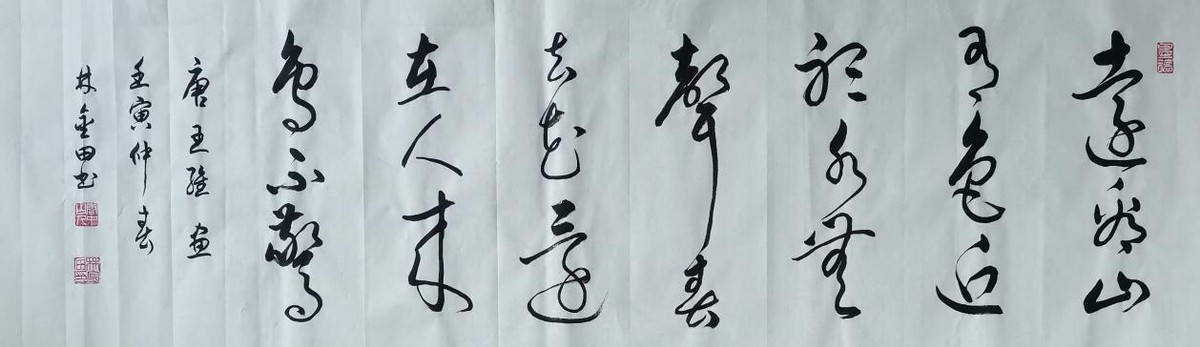 遠看山
有色近
聽水無
聲春
去花還
在人來
鳥不驚
唐王維畫
壬寅仲春
林金田书